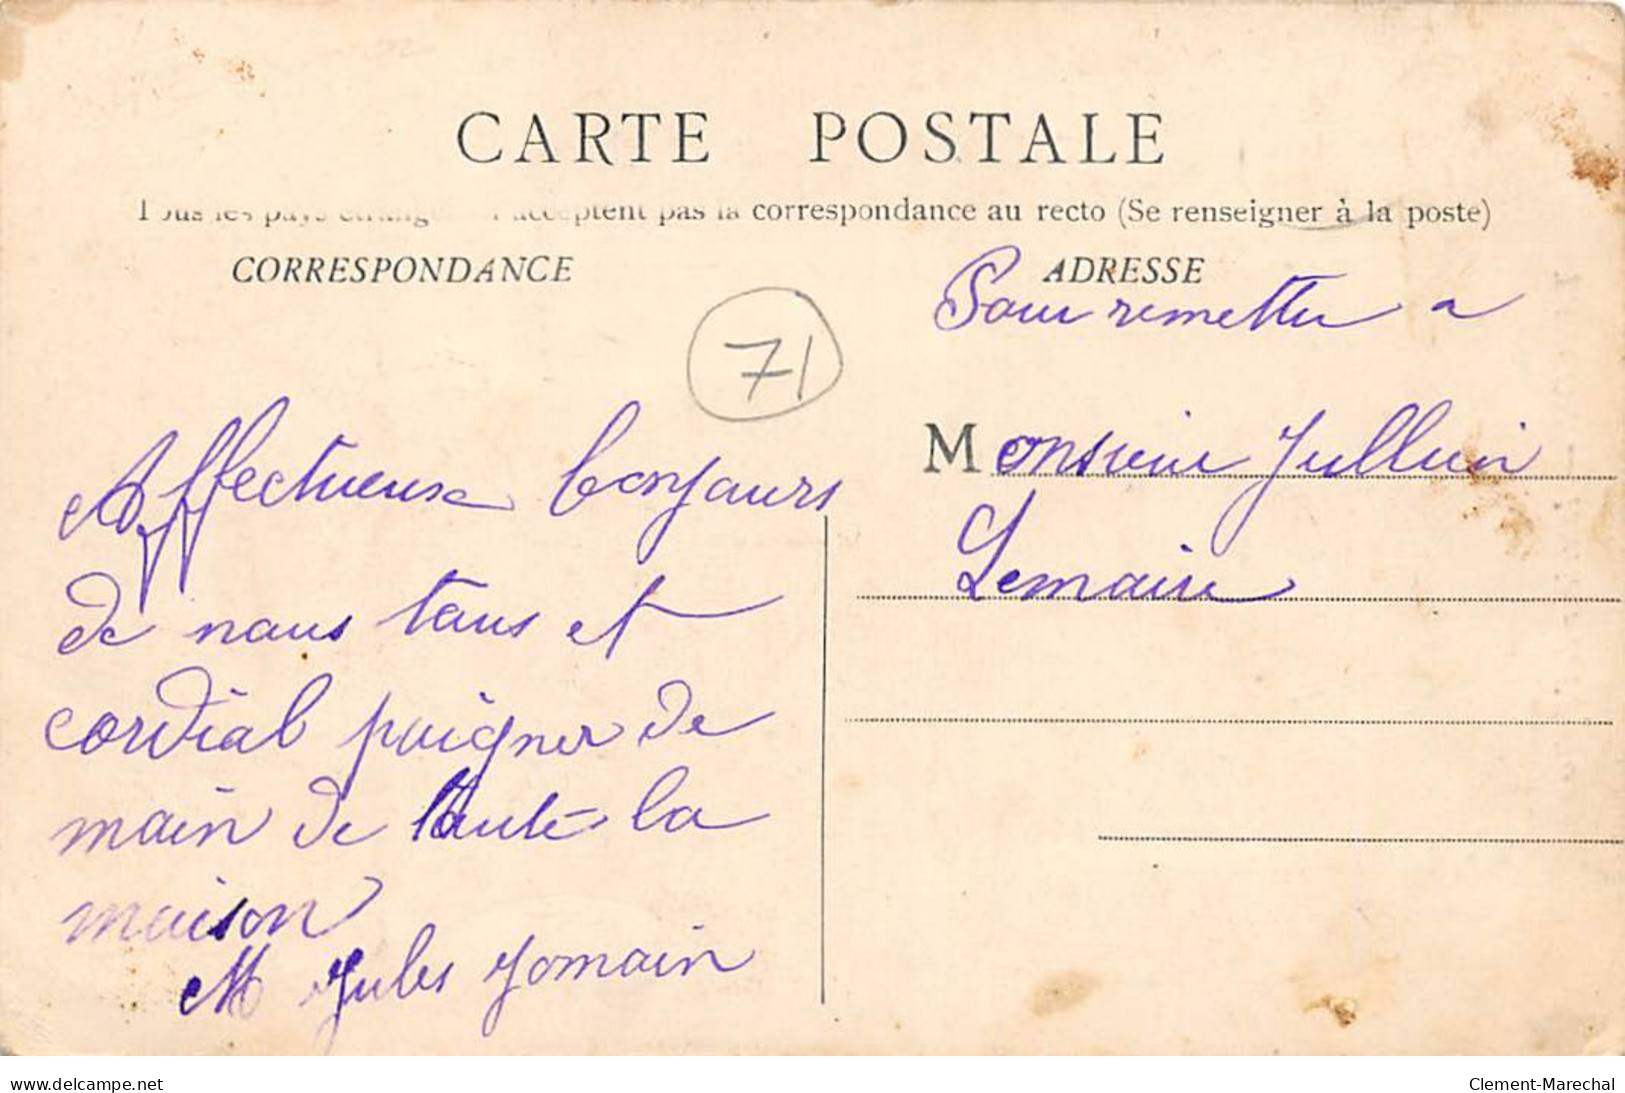 CARTE POSTALE
Tous les pays étrangers n'acceptent pas la correspondance au recto (Se renseigner à la poste)
CORRESPONDANCE
ADRESSE
Pour remettre a
71
Monsieur Jullien
Lemaire
Affectueuse bonjours
de nous tous et
cordial poigner de
main de toute la
maison
M Jules Jomain
www.delcampe.net
Clement-Marechal